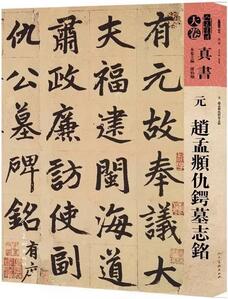 大卷
真書
元
趙孟頫仇鍔墓志銘
有元故奉議大
夫福建閩海道
肅政廉訪使副
仇公墓碑銘有序